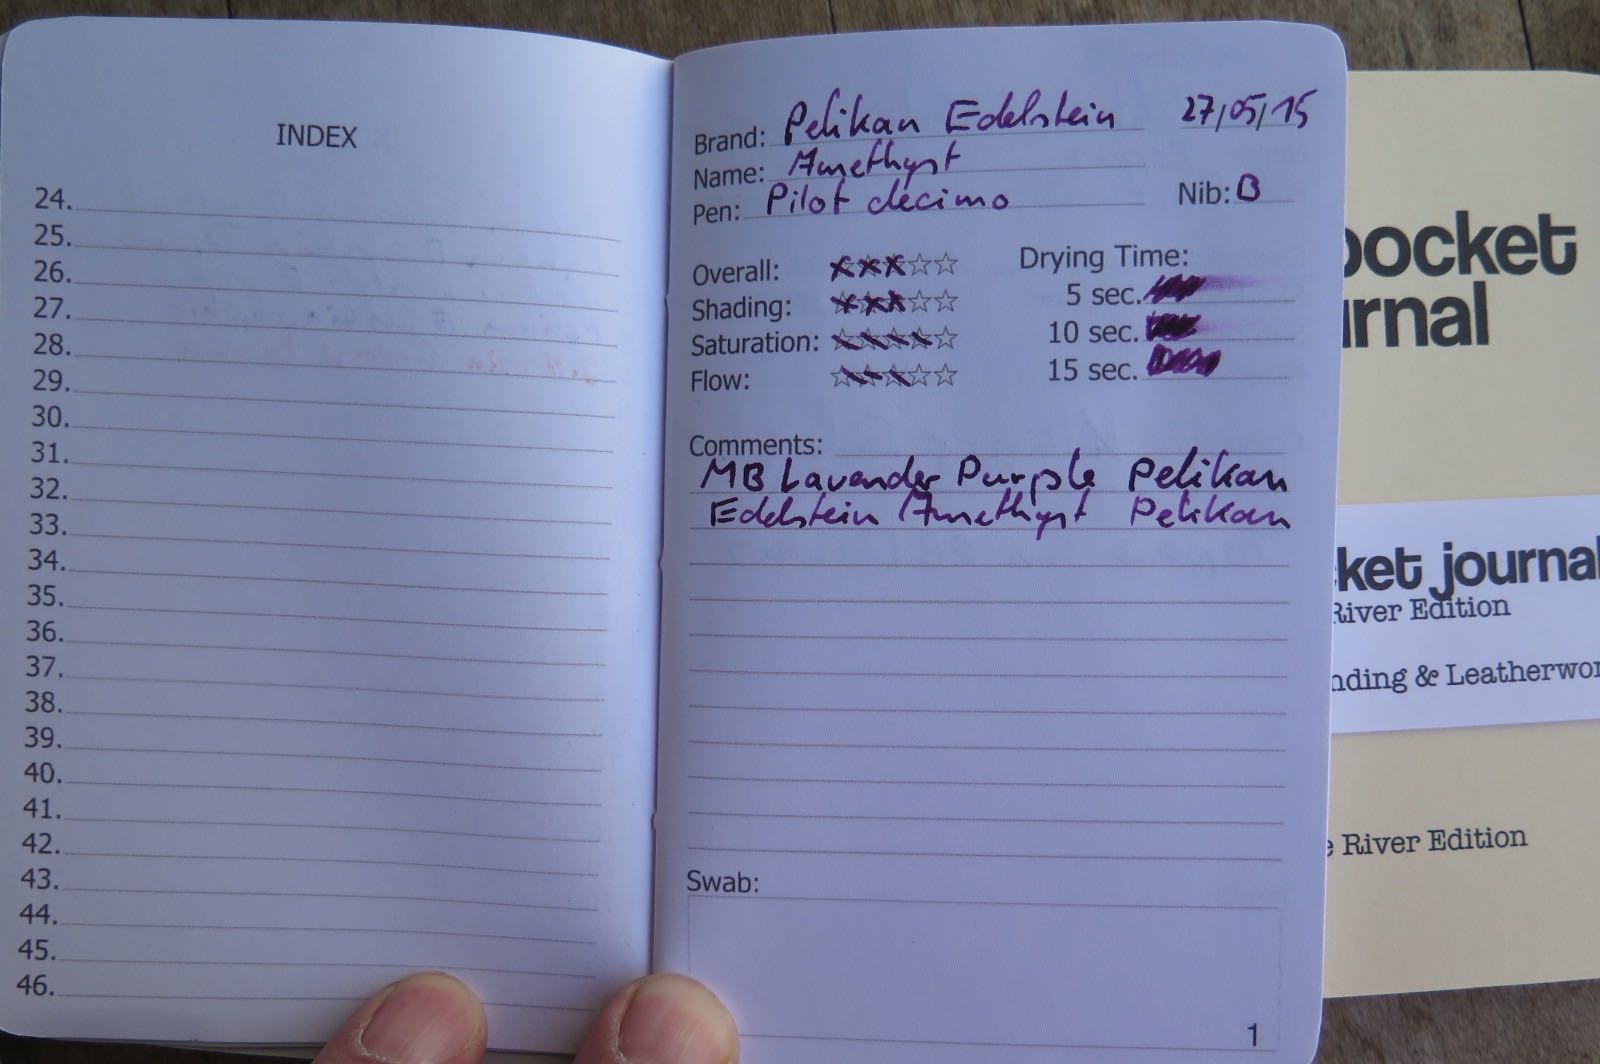 INDEX
24.
25.
26.
27.
28.
29.
30.
31.
32.
33.
34.
35.
36.
37.
38.
39.
40.
41.
42.
43.
44.
45.
46.
Brand: Pelikan Edelstein 27/05/15
Name: Amethyst
Pen: Pilot decimo Nib: B
Overall: Drying Time:
Shading: 5 sec.
Saturation: 10 sec.
Flow: 15 sec.
Comments:
MB Lavender Purple Pelikan
Edelstein Amethyst Pelikan
Swab:
1
pocket
journal
River Edition
& Leatherwor
River Edition